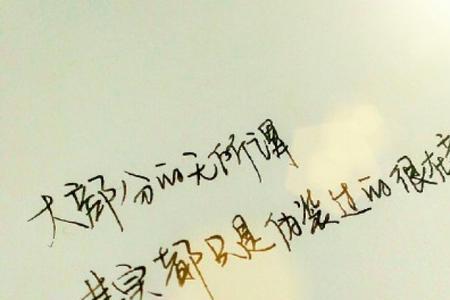 大部分的无所谓
其实都只是伪装过的很在